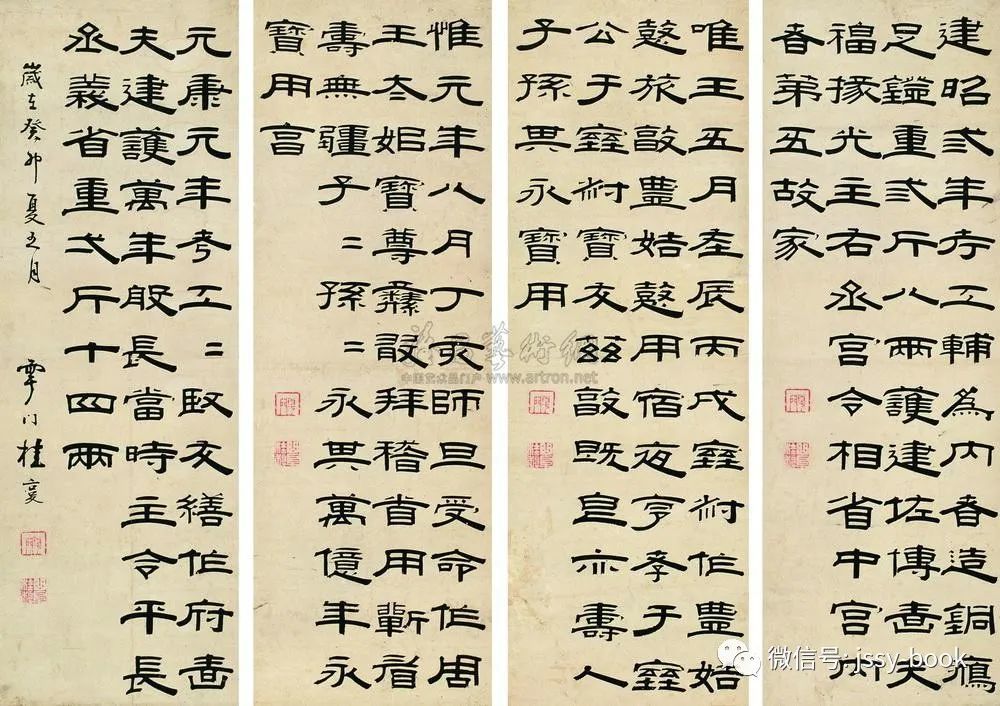 建昭弎年考工輔為內者造銅鴈
足鐙重弎斤八兩護建佐博嗇夫
福掾光主右丞宮令相省中宮內
者第五故家
唯王五月在辰丙戌室叔作豊姞
憼旅敦豊姞憼用宿夜亨孝于室
公于室叔寶友茲敦既皀亦壽人
子孫其永寶用
惟元年八月丁亥師旦受命作周
王太姒寶尊彝敢拜稽首用蘄眉
壽無疆子二孫二永其萬億年永
寶用亯
元康元年考工二賢友繕作府嗇
夫建護萬年般長當時主令平長
丞義省重弍斤十四兩
歲在癸卯夏五月 雩門桂馥
www.artron.net
微信号: jssy-book